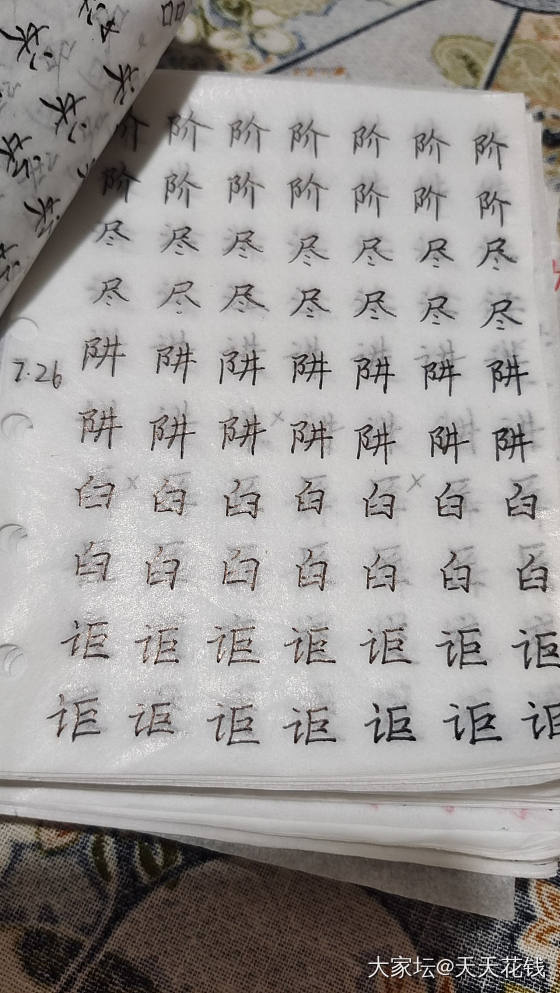 阶阶阶阶阶阶阶
阶阶阶阶阶阶阶
尽尽尽尽尽尽尽
尽尽尽尽尽尽尽
7.26 阱阱阱阱阱阱阱
阱阱阱阱阱阱阱
臼臼臼臼臼臼臼
臼臼臼臼臼臼臼
讵讵讵讵讵讵讵
讵讵讵讵讵讵讵
大家坛@天天花钱